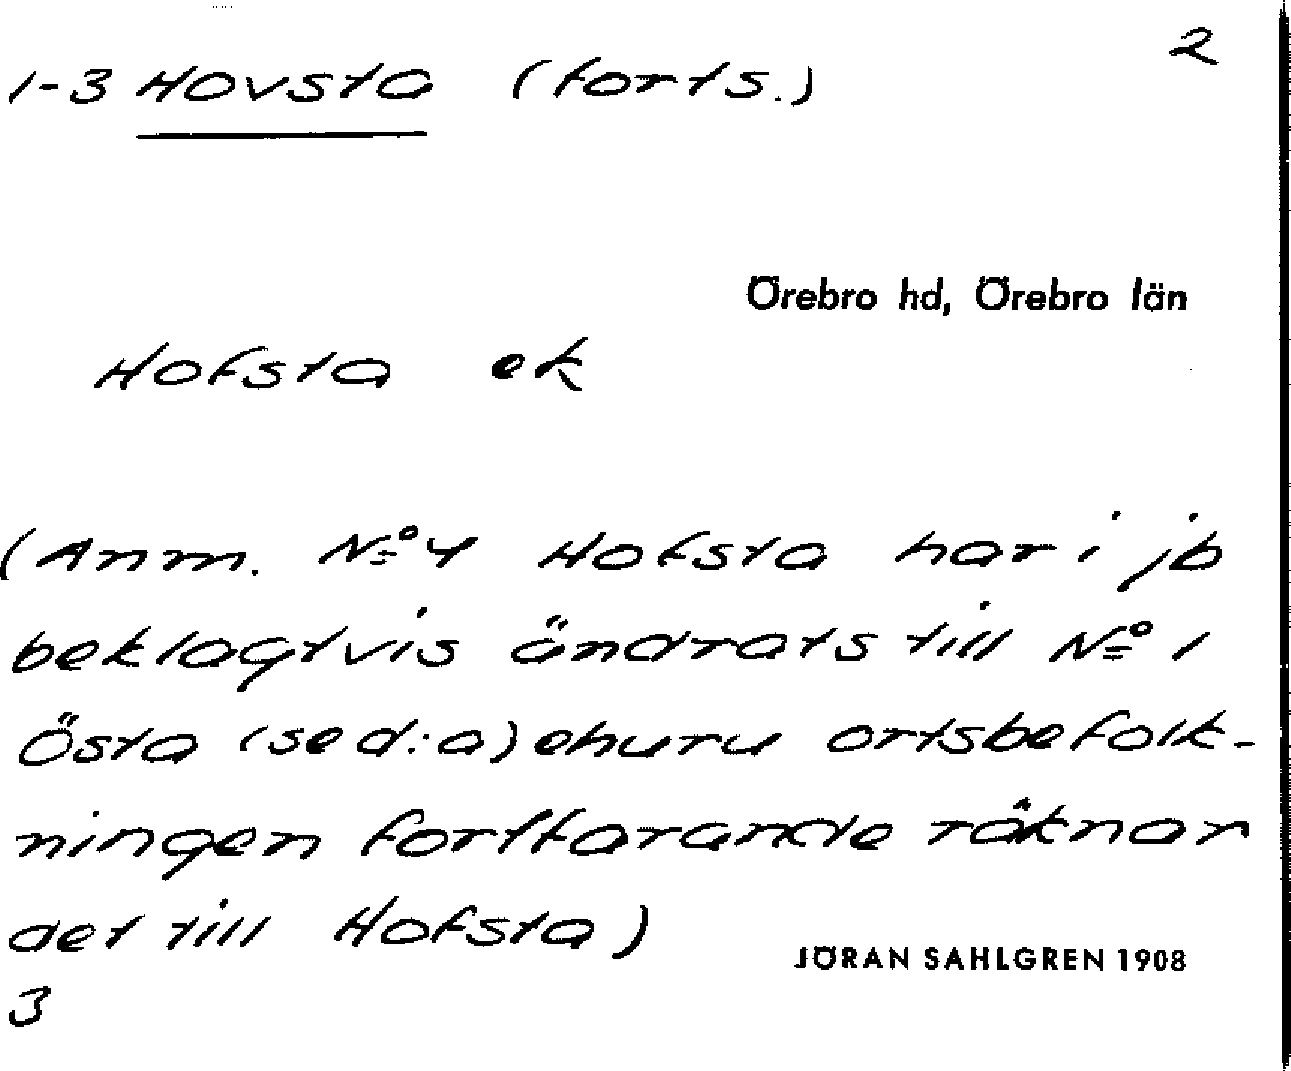 2
1-3 Hovsta (forts.)
Örebro hd, Örebro län
Hofsta ek
(Anm. No 4 Hofsta har i jb
beklagtvis ändrats till No 1
Östa (sed:a) ehuru ortsbefolk-
ningen fortfarande räknar
det till Hofsta)
JÖRAN SAHLGREN 1908
3